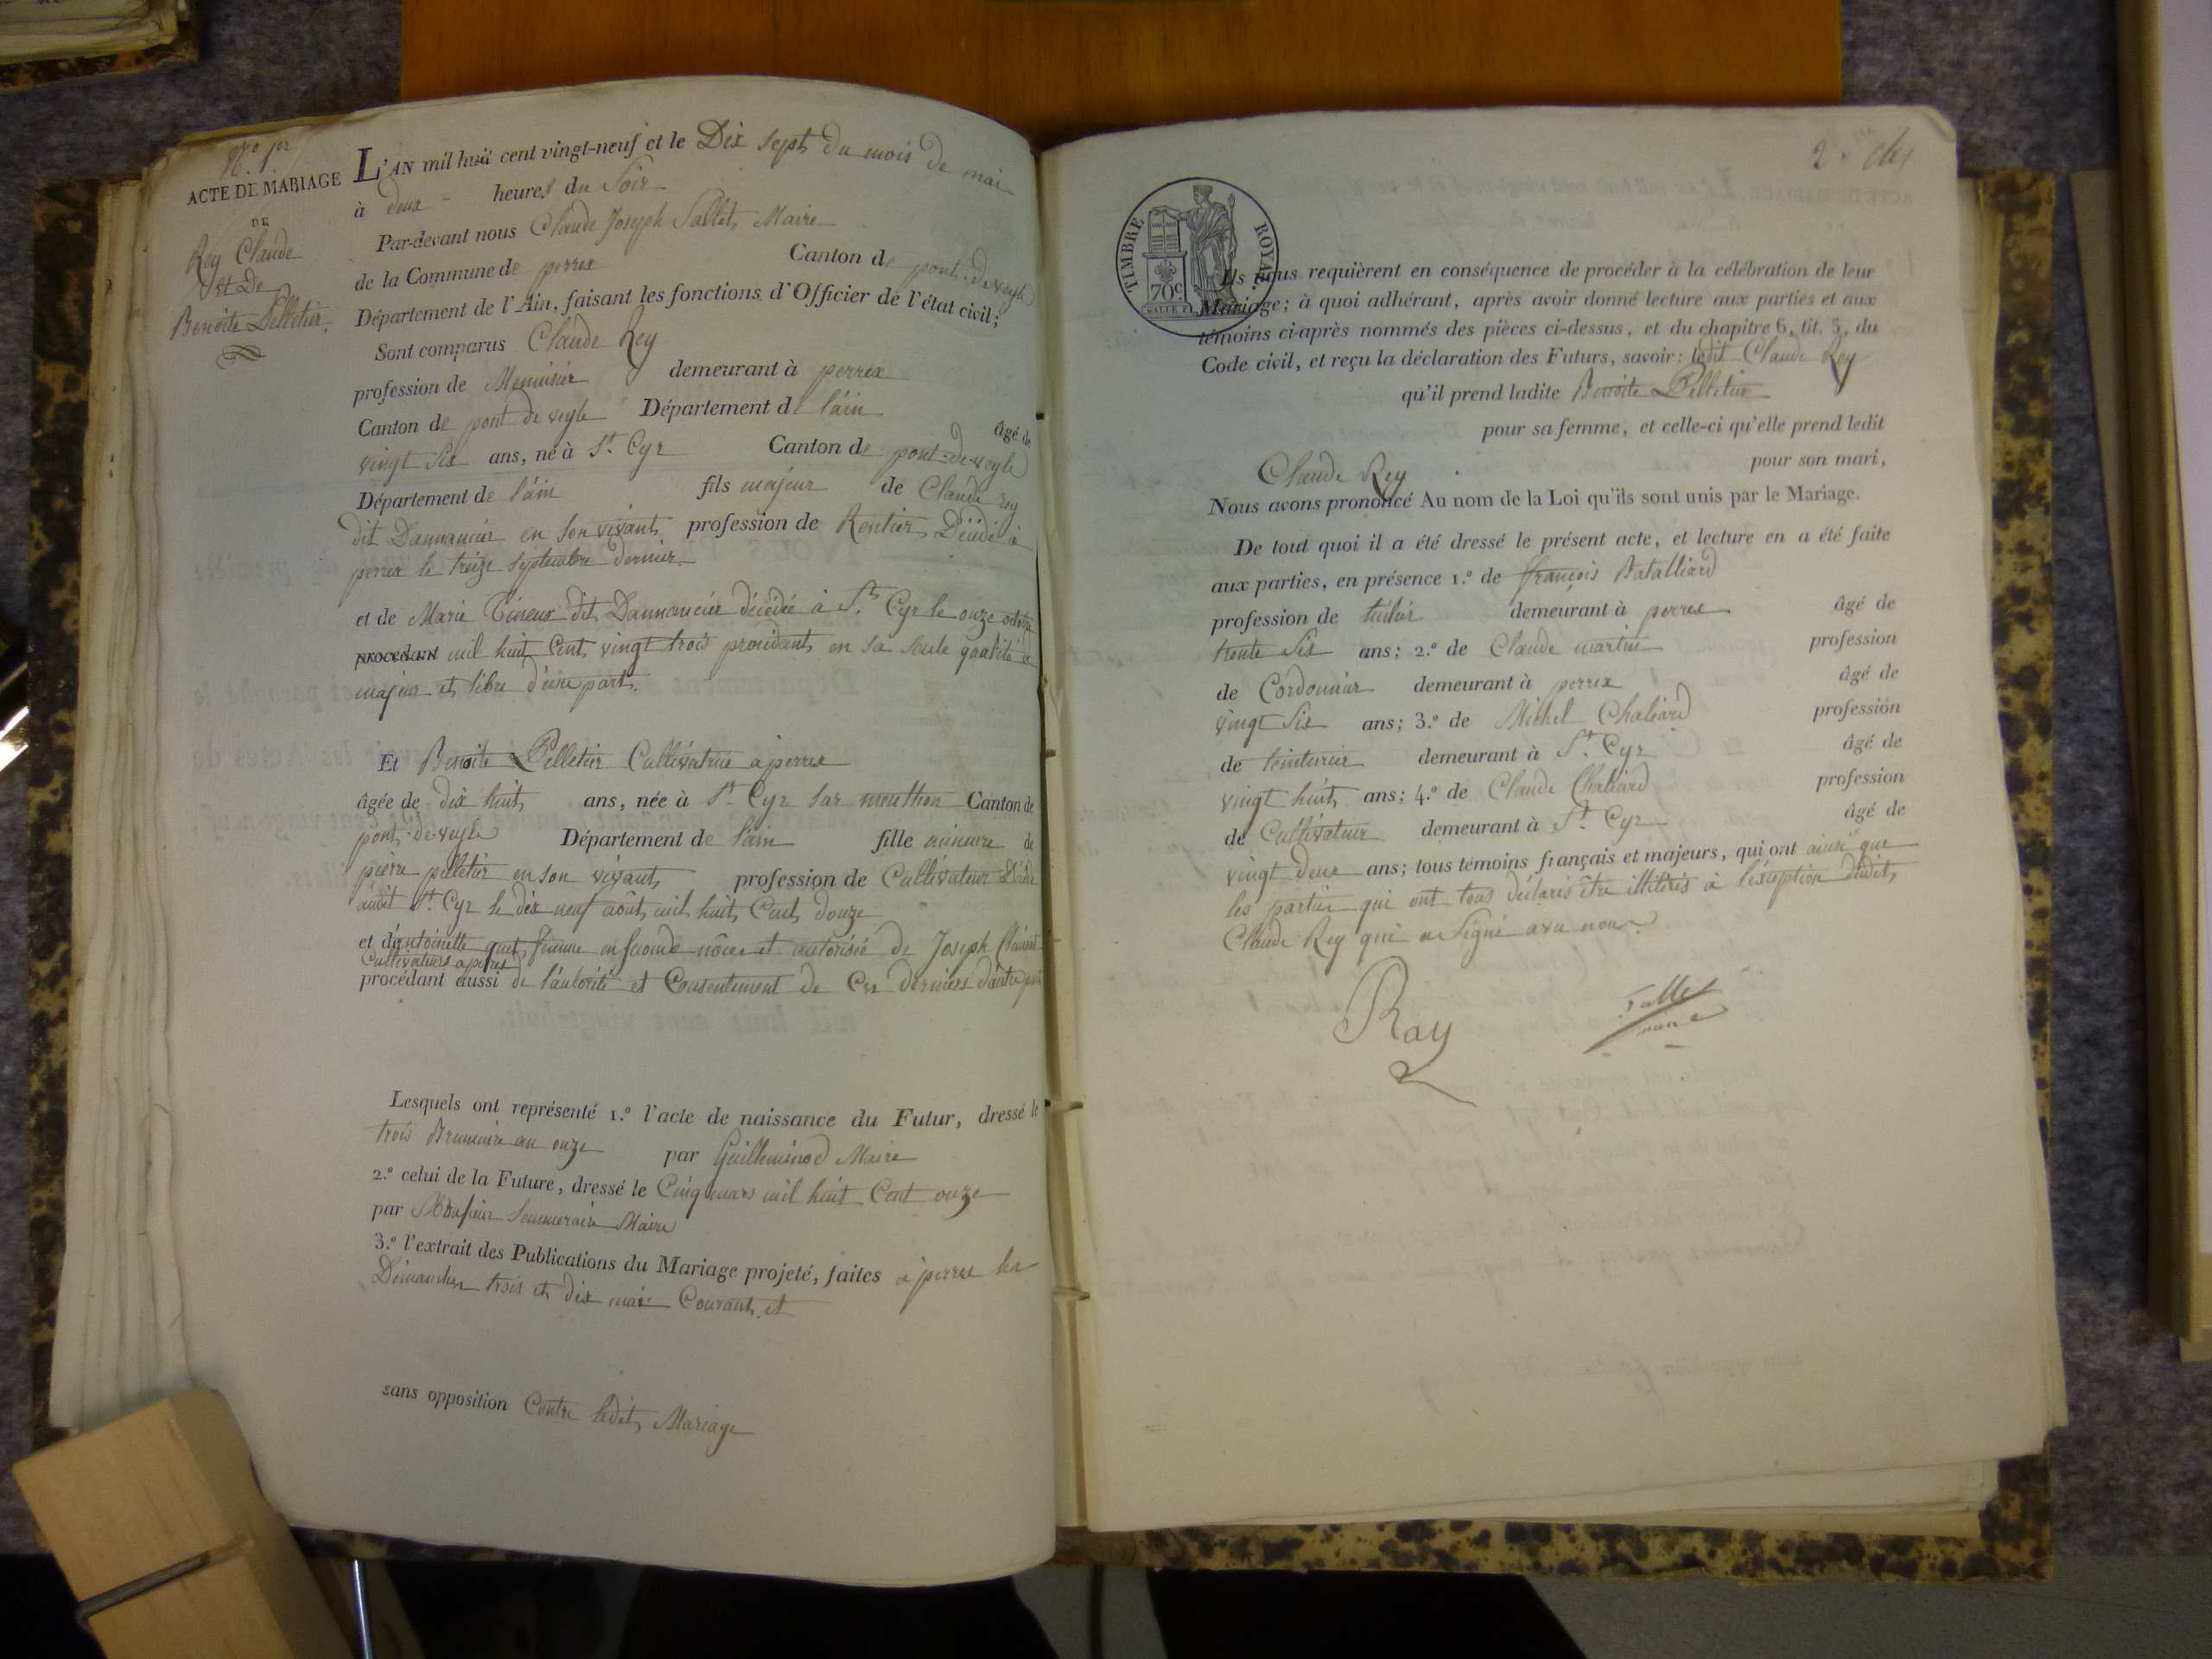 N.o 1er
ACTE DE MARIAGE
DE
Rey Claude
et De
Benoite Pelletier.
L'AN mil huit cent vingt-neuf et le Dix sept du mois de mai
à deux heures du Soir
Par-devant nous Claude Joseph Sallet, Maire
de la Commune de perrex Canton de pont-de-veyle
Département de l'Ain, faisant les fonctions d'Officier de l'état civil;
Sont comparus Claude Rey
profession de Menuisier demeurant à perrex
Canton de pont de veyle Département de l'ain âgé de
vingt six ans, né à St. Cyr Canton de pont-de-veyle
Département de l'ain fils majeur de Claude rey
dit Dannancier en son vivant profession de Rentier Décédé à
perrex le treize septembre dernier.
et de Marie dit Dannancier décédée à St. Cyr le onze octobre
procédant mil huit Cent vingt trois procédant en sa seule qualité de
majeur et libre d'une part.
Et Benoite Pelletier Cultivatrice à perrex
âgée de dix huit ans, née à St. Cyr sur menthon Canton de
pont-de-veyle Département de l'ain fille mineure de
pierre pelletier en son vivant profession de Cultivateur Décédé
audit St. Cyr le dix neuf août mil huit Cent douze
et d'antoinette femme en seconde nôce et autorisée de Joseph
Cultivateurs à perrex
procédant aussi de l'autorité et Consentement de Ces derniers d'autre part
Lesquels ont représenté 1.o l'acte de naissance du Futur, dressé le
trois Brumaire an onze par Guilleminod Maire
2.o celui de la Future, dressé le Cinq mars mil huit Cent onze
par Monsieur Maire
3.o l'extrait des Publications du Mariage projeté, faites à perrex les
Dimanches trois et dix mai Courant et
sans opposition Contre ledit Mariage
2.
TIMBRE ROYAL
70c
Ils nous requièrent en conséquence de procéder à la célébration de leur
Mariage; à quoi adhérant, après avoir donné lecture aux parties et aux
témoins ci-après nommés des pièces ci-dessus, et du chapitre 6, tit. 5, du
Code civil, et reçu la déclaration des Futurs, savoir: ledit Claude Rey
qu'il prend ladite Benoite Pelletier
pour sa femme, et celle-ci qu'elle prend ledit
Claude Rey pour son mari,
Nous avons prononcé Au nom de la Loi qu'ils sont unis par le Mariage.
De tout quoi il a été dressé le présent acte, et lecture en a été faite
aux parties, en présence 1.o de françois Batalliard
profession de demeurant à perrex âgé de
trente six ans; 2.o de Claude martin profession
de Cordonnier demeurant à perrex âgé de
vingt six ans; 3.o de Michel Chaliard profession
de teinturier demeurant à St. Cyr âgé de
vingt huit ans; 4.o de Claude Chaliard profession
de Cultivateur demeurant à St. Cyr âgé de
vingt deux ans; tous témoins français et majeurs, qui ont ainsi que
les parties qui ont tous déclarés être illitérés à l'éxception dudit
Claude Rey qui a signé avec nous
Ray
Sallet
maire